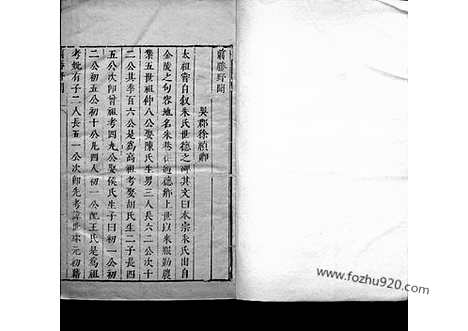 翦勝野聞
吳郡徐禎卿
太祖嘗自叙朱氏世德之碑其文曰本宗朱氏出自
金陵之句容地名朱巷在通德鄉上世以來服勤農
業五世祖仲八公娶陳氏生男三人長六二公次十
二公其季百六公是爲高祖考娶胡氏生二子長四
五公次即曾祖考四九公娶侯氏生子曰初一公初
二公初五公初十公凡四人初一公配王氏是爲祖
考妣有子二人長五一公次即先考諱世珍元初籍
www.fozhu920.com